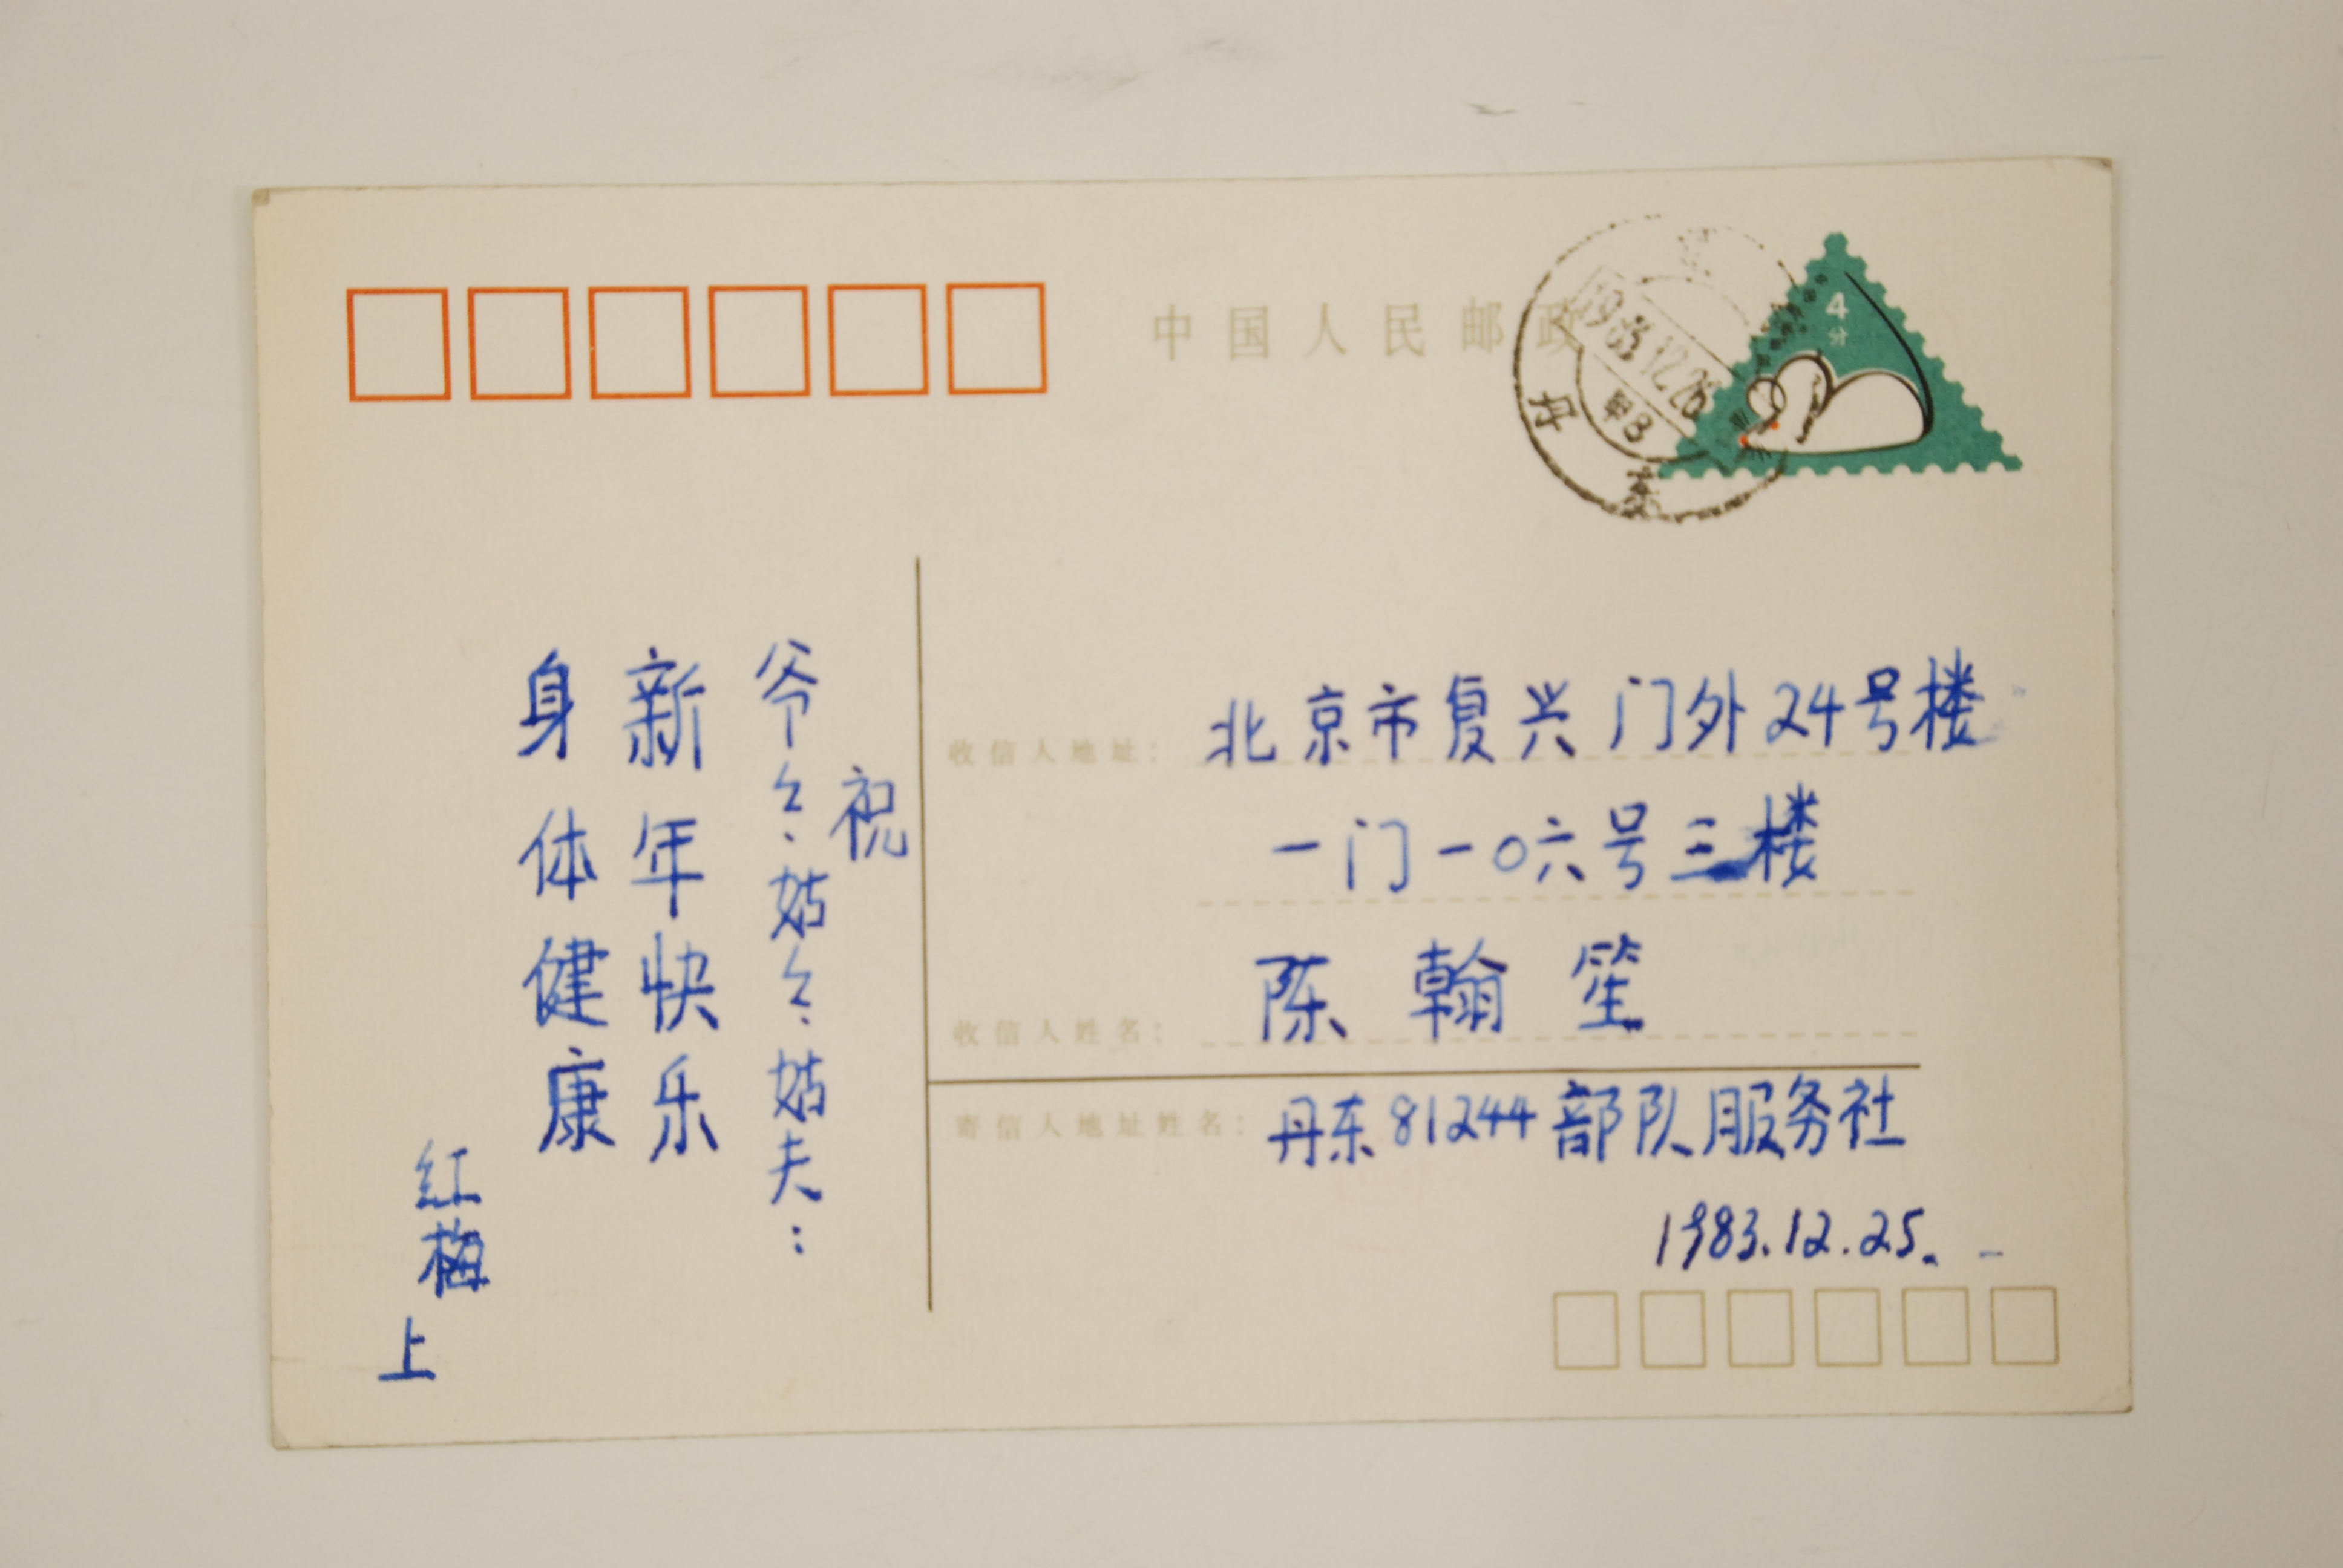 中国人民邮政
4
分
1983.12.26
甲3
丹
东
收信人地址：北京市复兴门外24号楼
一门一〇六号三楼
收信人姓名：陈翰笙
寄信人地址姓名：丹东81244部队服务社
1983.12.25.
祝
爷々、姑々、姑夫：
新年快乐
身体健康
红梅
上